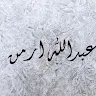 عبدالله ارمن